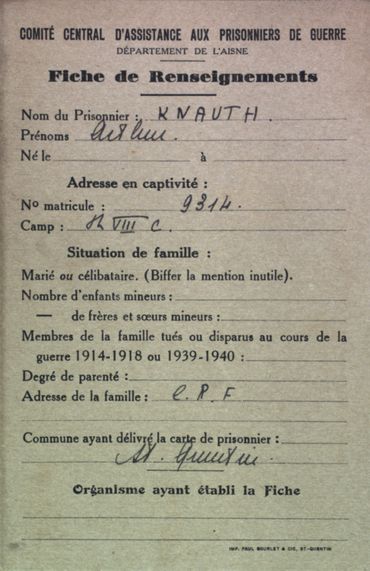 COMITÉ CENTRAL D'ASSISTANCE AUX PRISONNIERS DE GUERRE
DÉPARTEMENT DE L'AISNE
Fiche de Renseignements
Nom du Prisonnier : KNAUTH.
Prénoms Arthur.
Né le à
Adresse en captivité :
No matricule : 9314.
Camp : VIII C.
Situation de famille :
Marié ou célibataire. (Biffer la mention inutile).
Nombre d'enfants mineurs :
— de frères et sœurs mineurs :
Membres de la famille tués ou disparus au cours de la
guerre 1914-1918 ou 1939-1940 :
Degré de parenté :
Adresse de la famille : C.R.F
Commune ayant délivré la carte de prisonnier :
St. Quentin.
Organisme ayant établi la Fiche
IMP. PAUL BOURLET & CIE, ST-QUENTIN